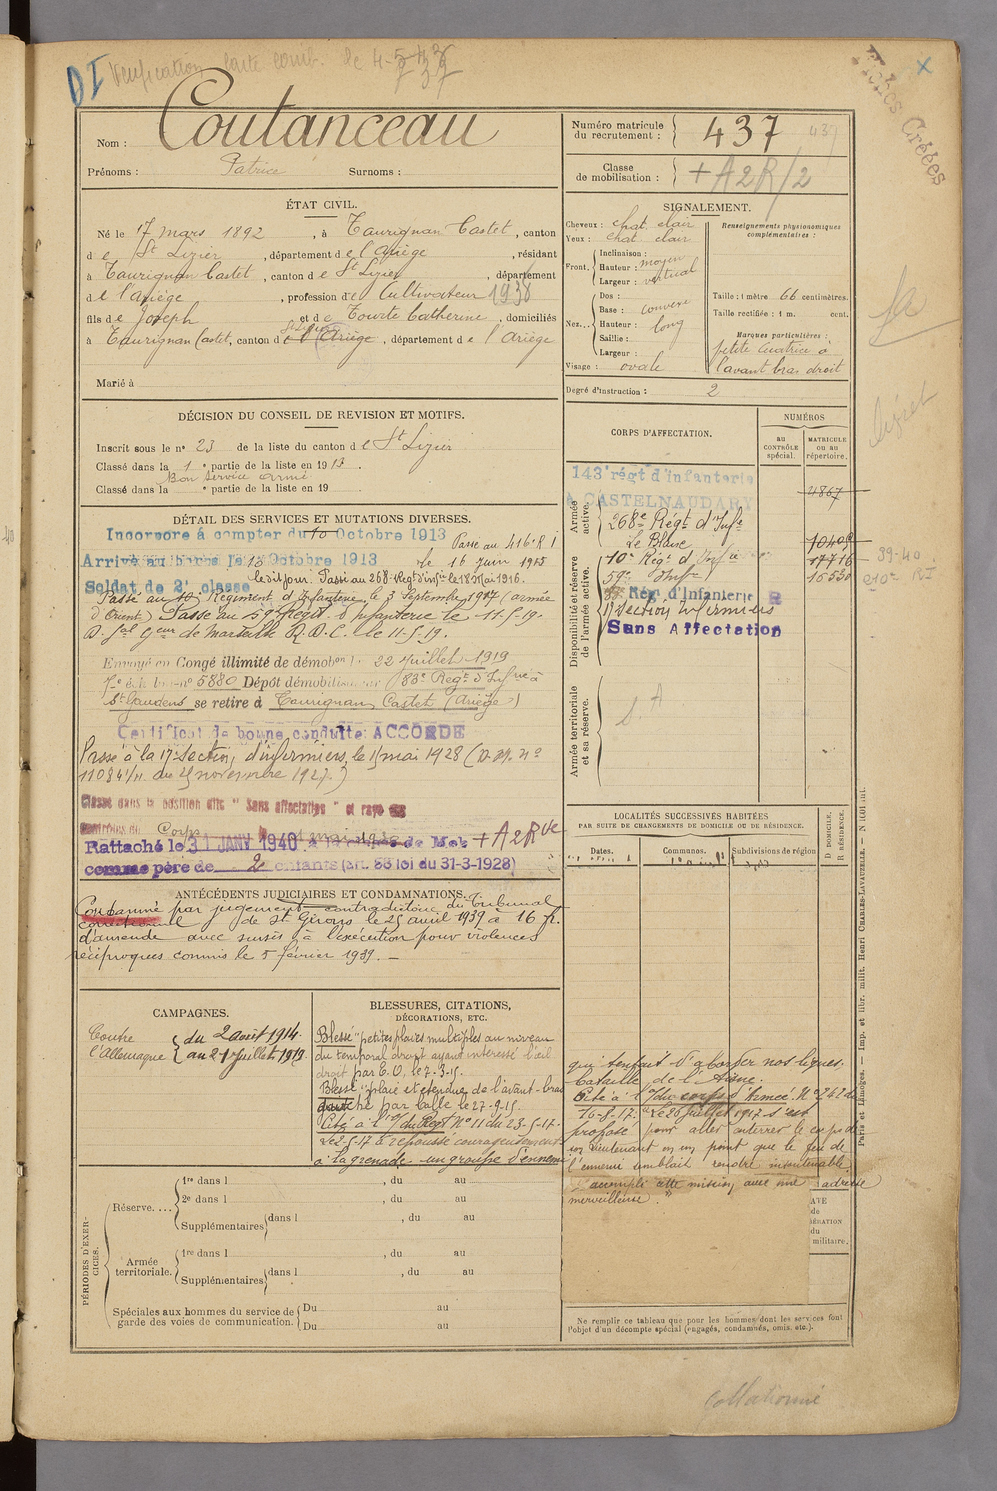 DI Verification carte comb. le 4-5-
Fiches Créées
x
Nom : Coutanceau
Prénoms : Patrice Surnoms :
Numéro matricule du recrutement : 437 437
Classe de mobilisation : + A2R/2
ÉTAT CIVIL.
Né le 17 mars 1892, à Taurignan Castet, canton
d e St Lizier, département d e l'Ariège, résidant
à Taurignan Castet, canton d e St Lizier, département
d e l'Ariège, profession d e Cultivateur 1938
fils d e Joseph et d e Tourte Catherine, domiciliés
St Lizier
à Taurignan Castet, canton d e l'Ariège, département d e l'Ariège
Marié à
SIGNALEMENT.
Cheveux : chat. clair
Yeux : chat clair
Front. Inclinaison :
Hauteur : moyen
Largeur : vertical
Nez... Dos :
Base : convexe
Hauteur : long
Saillie :
Largeur :
Visage : ovale
Renseignements physionomiques complémentaires :
Taille : 1 mètre 66 centimètres.
Taille rectifiée : 1 m. cent.
Marques particulières :
petite cicatrice à
l'avant bras droit
Degré d'instruction : 2
DÉCISION DU CONSEIL DE REVISION ET MOTIFS.
Inscrit sous le n° 23 de la liste du canton d e St Lizier
Classé dans la 1e partie de la liste en 1913.
Bon Service armé
Classé dans la e partie de la liste en 19
CORPS D'AFFECTATION.
NUMÉROS
AU CONTRÔLE spécial.
MATRICULE OU AU répertoire.
Armée active.
143e régt d'infanterie
A CASTELNAUDARY
4867
268e Régt d'Infie
Le Blanc
Disponibilité et réserve de l'armée active.
10e Régt d'Infie
17716
59e Infie
Régt d'Infanterie R
17e Section Infirmiers
Sans Affectation
Armée territoriale et sa réserve.
S. A
39-40
210e RI
livret
DÉTAIL DES SERVICES ET MUTATIONS DIVERSES.
Incorporé à compter du 10 Octobre 1913
Passé au 416e R I
Arrivé au corps le 13 Octobre 1913
le 16 juin 1915
Soldat de 2e classe
le dit jour. Passé au 268e Régt d'infie le 18 Mai 1916.
Passé au 10e Régiment d'Infanterie le 3 Septembre 1917 (armée
d'Orient) Passé au 59e Régt d'Infanterie le 11-5-19.
Envoyé en Congé illimité de démobon le 22 Juillet 1919
7e éch lon n° 5880 Dépôt démobilisateur (83e Régt d'Infie à
St Gaudens se retire à Taurignan Castet (Ariège)
Certificat de bonne conduite ACCORDE
Passé à la 17e Section d'infirmiers le 1er mai 1928 (D.M. n°
11084 1/11 du 25 novembre 1927)
Classé dans la position dite "Sans affectation" et rayé des
contrôles du Corps
Rattaché le 31 JANV 1940 + A2R
comme père de 2 enfants (art. 58 loi du 31-3-1928)
ANTÉCÉDENTS JUDICIAIRES ET CONDAMNATIONS.
Condamné par jugement contradictoire du Tribunal
correctionnel de St Girons le 25 avril 1939 à 16 fr.
d'amende avec sursis à l'exécution pour violences
réciproques commis le 5 février 1939. —
LOCALITÉS SUCCESSIVES HABITÉES
PAR SUITE DE CHANGEMENTS DE DOMICILE OU DE RÉSIDENCE.
Dates.
Communes.
Subdivisions de région
D DOMICILE.
R RÉSIDENCE.
CAMPAGNES.
Contre
l'Allemagne
du 2 août 1914.
au 21 Juillet 1919
BLESSURES, CITATIONS,
DÉCORATIONS, ETC.
Blessé "petites plaies multiples au niveau
du temporal droit ayant intéressé l'œil
droit par E.O. le 7-3-15.
Blessé "plaie et étendue de l'avant-bras
par balle le 27-9-15.
Cité à l'O/du Régt N° 11 du 23-5-17.
Le 2-5-17 a repoussé courageusement
à la grenade un groupe d'ennemi
qui tentait d'aborder nos lignes.
bataille de l'Aisne.
Cité à l'O/du corps d'Armée. N° 242 du
16-8-17. "Le 26 juillet 1917 s'est
proposé pour aller enterrer le corps de
son lieutenant en un point que le feu de
l'ennemi semblait rendre insoutenable.
A accompli cette mission avec une adresse
merveilleuse."
PÉRIODES D'EXERCICES.
Réserve....
1re dans l , du au
2e dans l , du au
Supplémentaires dans l , du au
Armée territoriale.
1re dans l , du au
Supplémentaires dans l , du au
Spéciales aux hommes du service de garde des voies de communication.
Du au
Du au
Ne remplir ce tableau que pour les hommes dont les services font
l'objet d'un décompte spécial (engagés, condamnés, omis, etc.).
Paris et Limoges. — Imp. et libr. milit. Henri CHARLES-LAVAUZELLE.
Collationné